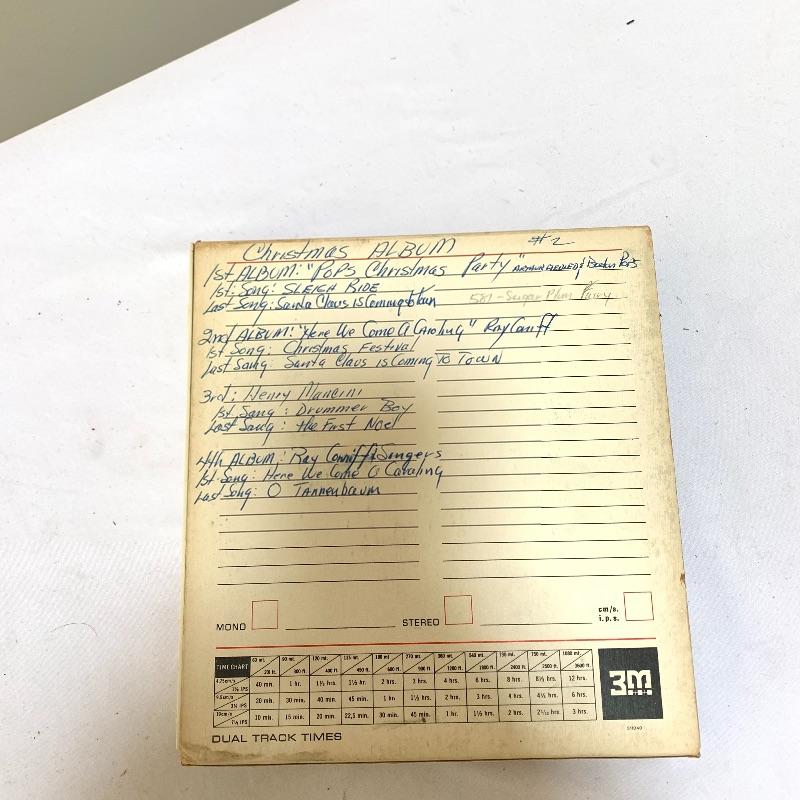 Christmas ALBUM #2
1st ALBUM: "POPS Christmas Party" ARTHUR FIEDLER & Boston Pops
1st Song: SLEIGH RIDE
Last Song: Santa Claus is Coming to Town
581 - Sugar Plum Fairy
2nd ALBUM: "Here We Come A Caroling" Ray Coniff
1st Song: Christmas Festival
Last Song: Santa Claus is Coming To Town
3rd: Henry Mancini
1st Song: Drummer Boy
Last Song: the First Noel
4th ALBUM: Ray Conniff Singers
1st Song: Here We Come A Caroling
Last Song: O Tannenbaum
MONO STEREO cm/s. i.p.s.
TIME CHART 60 mt. 90 mt. 120 mt. 135 mt. 180 mt. 270 mt. 360 mt. 540 mt. 730 mt. 750 mt. 1080 mt.
200 ft. 300 ft. 400 ft. 450 ft. 600 ft. 900 ft. 1200 ft. 1800 ft. 2400 ft. 2500 ft. 3600 ft.
4,75cm/s 1⅞ IPS 40 min. 1 hr. 1⅓ hrs. 1½ hr. 2 hrs. 3 hrs. 4 hrs. 6 hrs. 8 hrs. 8⅓ hrs. 12 hrs.
9,5cm/s 3¾ IPS 20 min. 30 min. 40 min. 45 min. 1 hr. 1½ hrs. 2 hr. 3 hrs. 4 hrs. 4⅙ hrs. 6 hrs.
19cm/s 7½ IPS 10 min. 15 min. 20 min. 22,5 min. 30 min. 45 min. 1 hr. 1½ hrs. 2 hrs. 2¹⁄₁₂ hrs. 3 hrs.
3M
DUAL TRACK TIMES